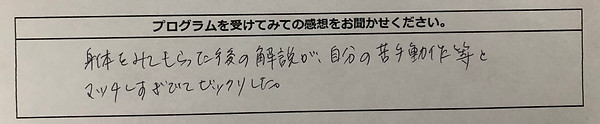 プログラムを受けてみての感想をお聞かせください。
身体をみてもらった後の解説が、自分の苦手動作等と
マッチしすぎてビックリした。